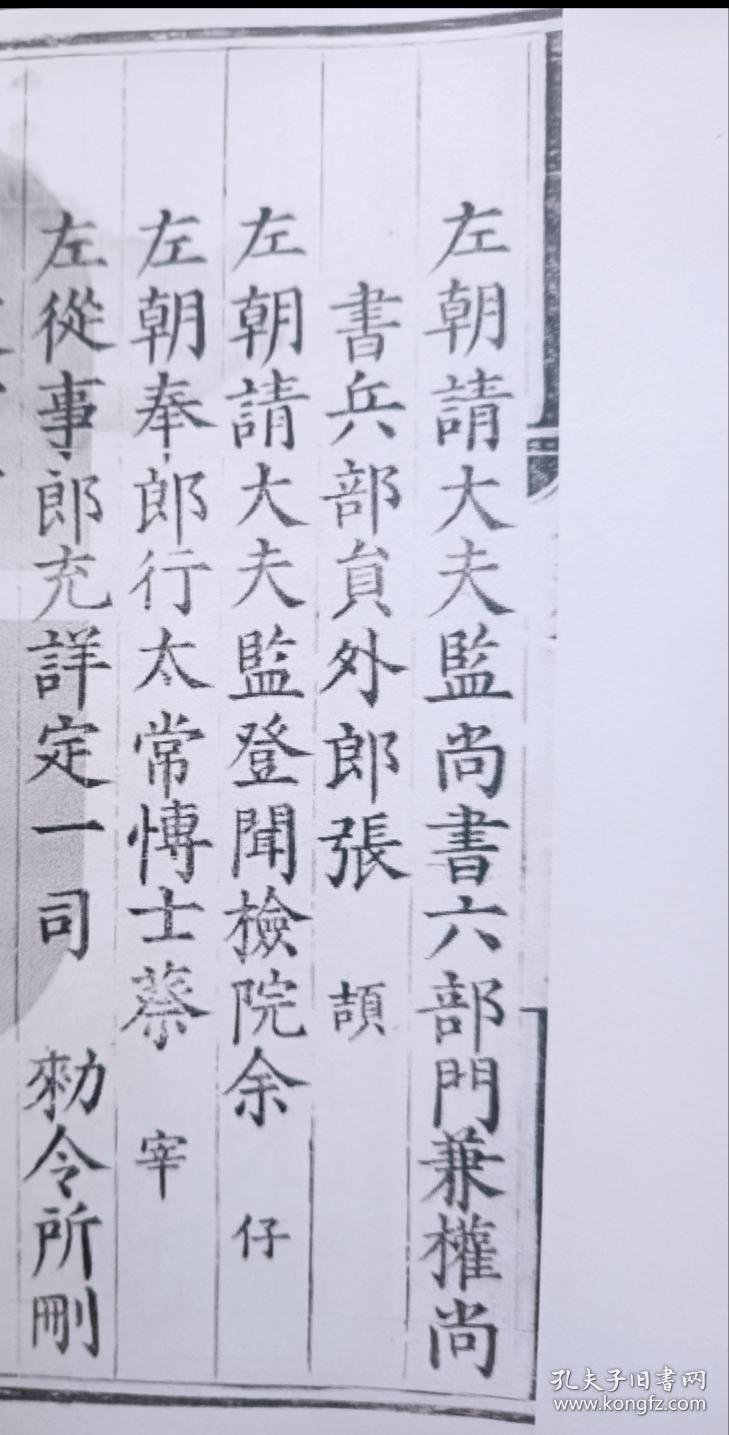 左朝請大夫監尚書六部門兼權尚
書兵部貟外郎張 頡
左朝請大夫監登聞檢院余 仔
左朝奉郎行太常愽士蔡 宰
左從事郎充詳定一司 勑令所刪
孔夫子旧书网
www.kongfz.com